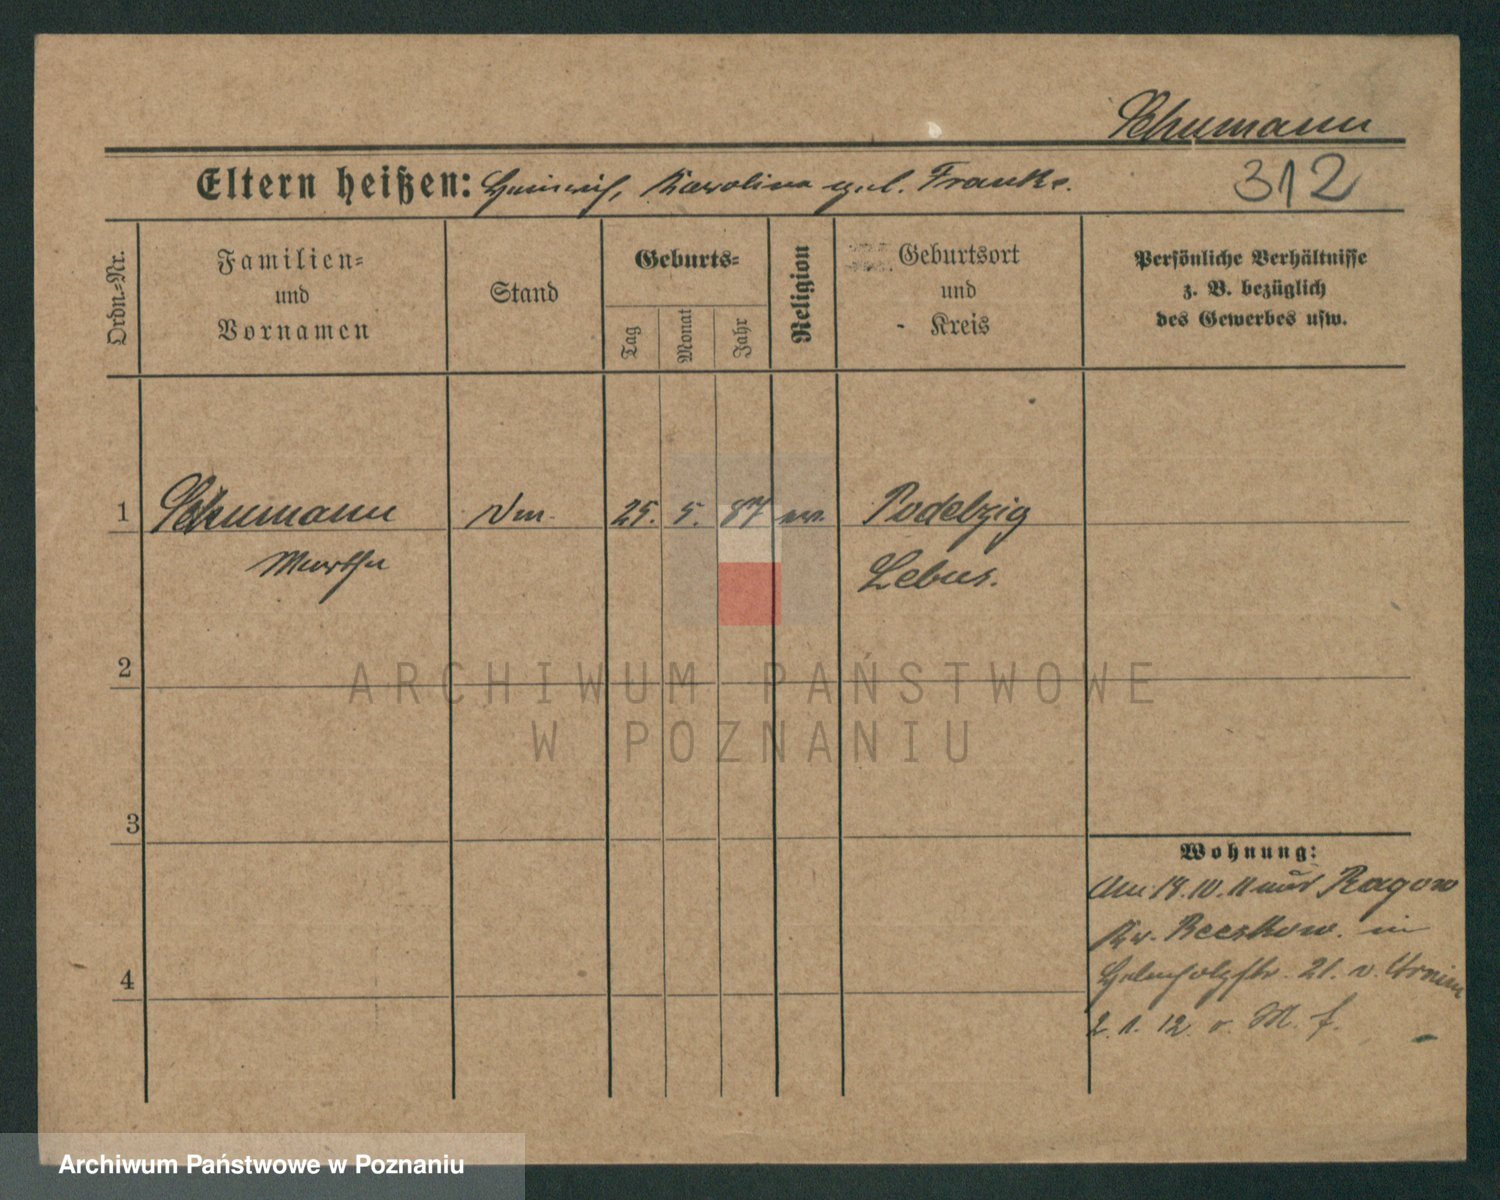 Schumann
Eltern heißen: Heinrich, Karoline geb. Franke.
312
Ordn.-Nr.
Familien-
und
Vornamen
Stand
Geburts-
Tag
Monat
Jahr
Religion
Geburtsort
und
Kreis
Persönliche Verhältnisse
z. B. bezüglich
des Gewerbes usw.
1 Schumann 25. 5. 87 ev. Podelzig
Martha
Lebus.
2
ARCHIWUM PAŃSTWOWE
W POZNANIU
3
Wohnung:
Am 18. 10. 11 aus Ragow
Kr. Beeskow. in
21. v.
4
2. 1. 12. v. M. f.
Archiwum Państwowe w Poznaniu